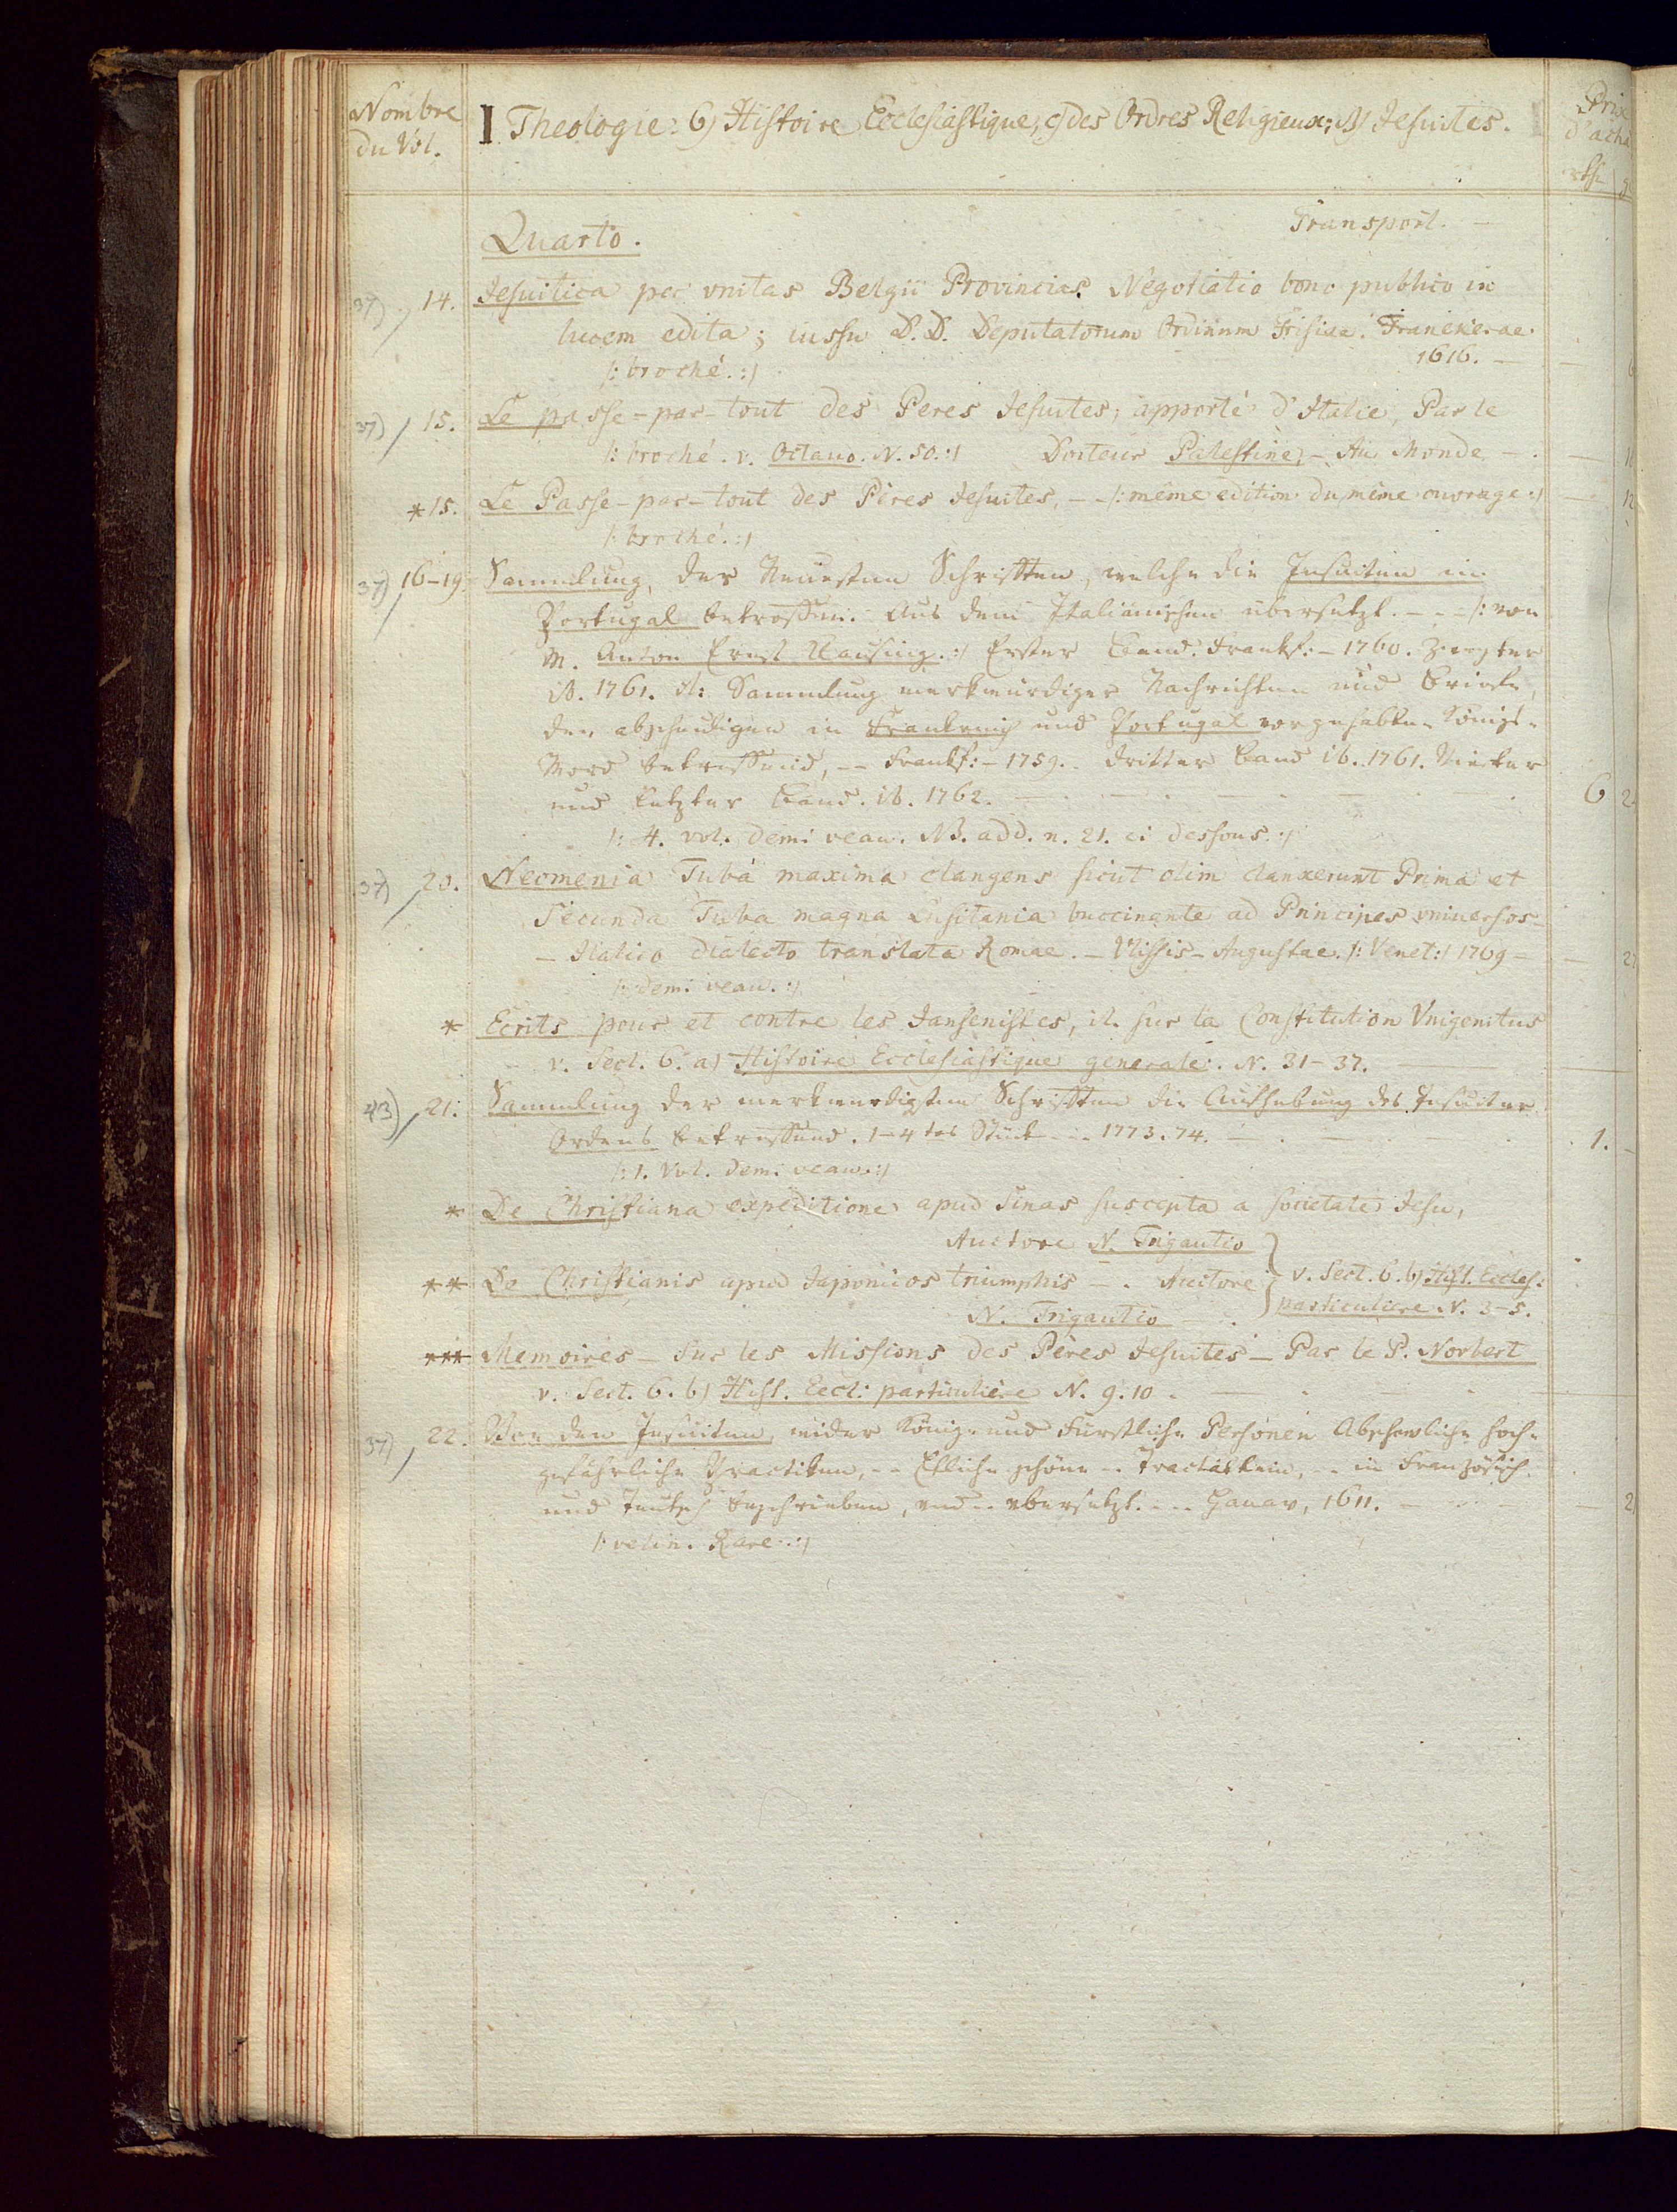 Nombre du Vol.
I. Theologie: 6) Histoire Ecclesiastique, c) des Ordres Religieux; B) Jesuites.
Prix d'acha
Quarto. Transport. —
37) 14. Jesuitica per vnitas Belgii Provincias Negotiatio bono publico in
lucem edita; iussu D.D. Deputatorum Ordinum Frisiae. Franekerae.
/: broché. :/ 1616. —
37) 15. Le passe-par-tout des Peres Jesuites, apporté d'Italie, Par le
/: broché. v. Octauo. N. 50. :/ Docteur Palestine, — Au Monde —
*15. Le Passe-par-tout des Pères Jesuites, — /: même edition du même ouvrage :/ — 12
/: broché. :/
37) 16–19. Sammlung, der Neuesten Schrifften, welche die Jesuiten in
Portugal betreffen. Aus dem Italiänischen übersetzt. — /: von
M. Anton Ernst Klausing. :/ Erster Band. Frankf: — 1760. Zweyter
ib. 1761. it: Sammlung merkwürdiger Nachrichten und Briefe,
den abscheulichen in Frankreich und Portugal vorgehabten Königs-
Mord betreffend, — Frankf: — 1759. Dritter Band ib. 1761. Vierter
und letzter Band. ib. 1762. — 6
/: 4. vol. demi veau. NB. add. n. 21. ci dessous. :/
37) 20. Neomenia Tubâ maxima clangens sicut olim clanxerunt Prima et
Secunda Tuba magna Lusitania buccinante ad Principes vniuersos —
— Italico dialecto translata Romae. — Vlissis-Augustae. /: Venet: / 1769 —
/: demi veau. :/
* Ecrits pour et contre les Jansenistes, it. sur la Constitution Vnigenitus
v. Sect. 6. a) Histoire Ecclesiastique generale. N. 31–37.
43) 21. Sammlung der merkwürdigsten Schrifften die Aufhebung des Jesuiter
Ordens betreffend. 1–4tes Stück — 1773. 74. — 1.
/: 1. Vol. demi veau. :/
* De Christiana expeditione apud Sinas suscepta a societate Jesu,
Auctore N. Trigautio
** De Christianis apud Japonicos triumphis — Auctore
N. Trigautio — } v. Sect. 6. b) Hist. Eccles.
particuliere N. 3–5.
*** Memoires — sur les Missions des Pères Jesuites — Par le P. Norbert
v. Sect. 6. b) Hist. Eccl: particulière N. 9. 10.
37) 22. Von den Jesuiten, wider König- und Fürstliche Personen Abschewliche hoch-
gefährliche Practiken, — Etliche schöne — Tractätlein, — in Französisch
und Teutsch beschrieben, vnd — vbersetzt. — Hanaw, 1611. —
/: velin. Rare. :/